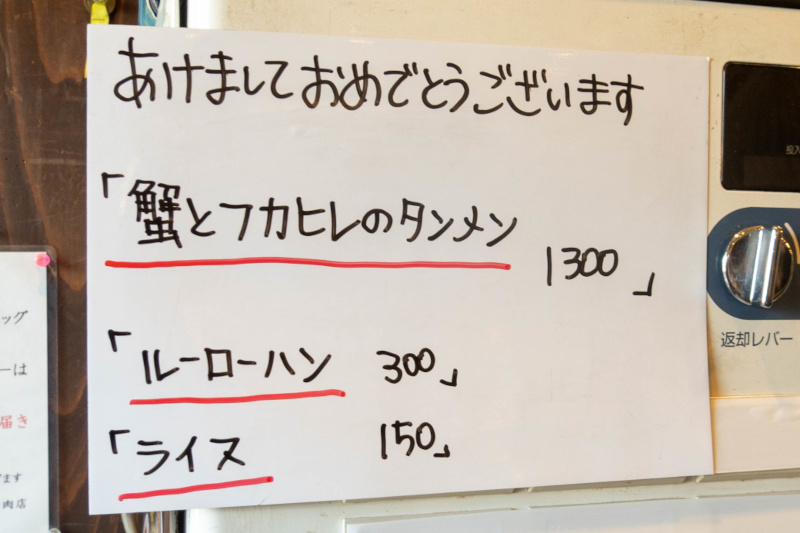 あけましておめでとうございます
「蟹とフカヒレのタンメン
1300」
「ルーローハン 300」
「ライス 150」
投入
返却レバー
ッグ
ーは
届き
ます
肉店